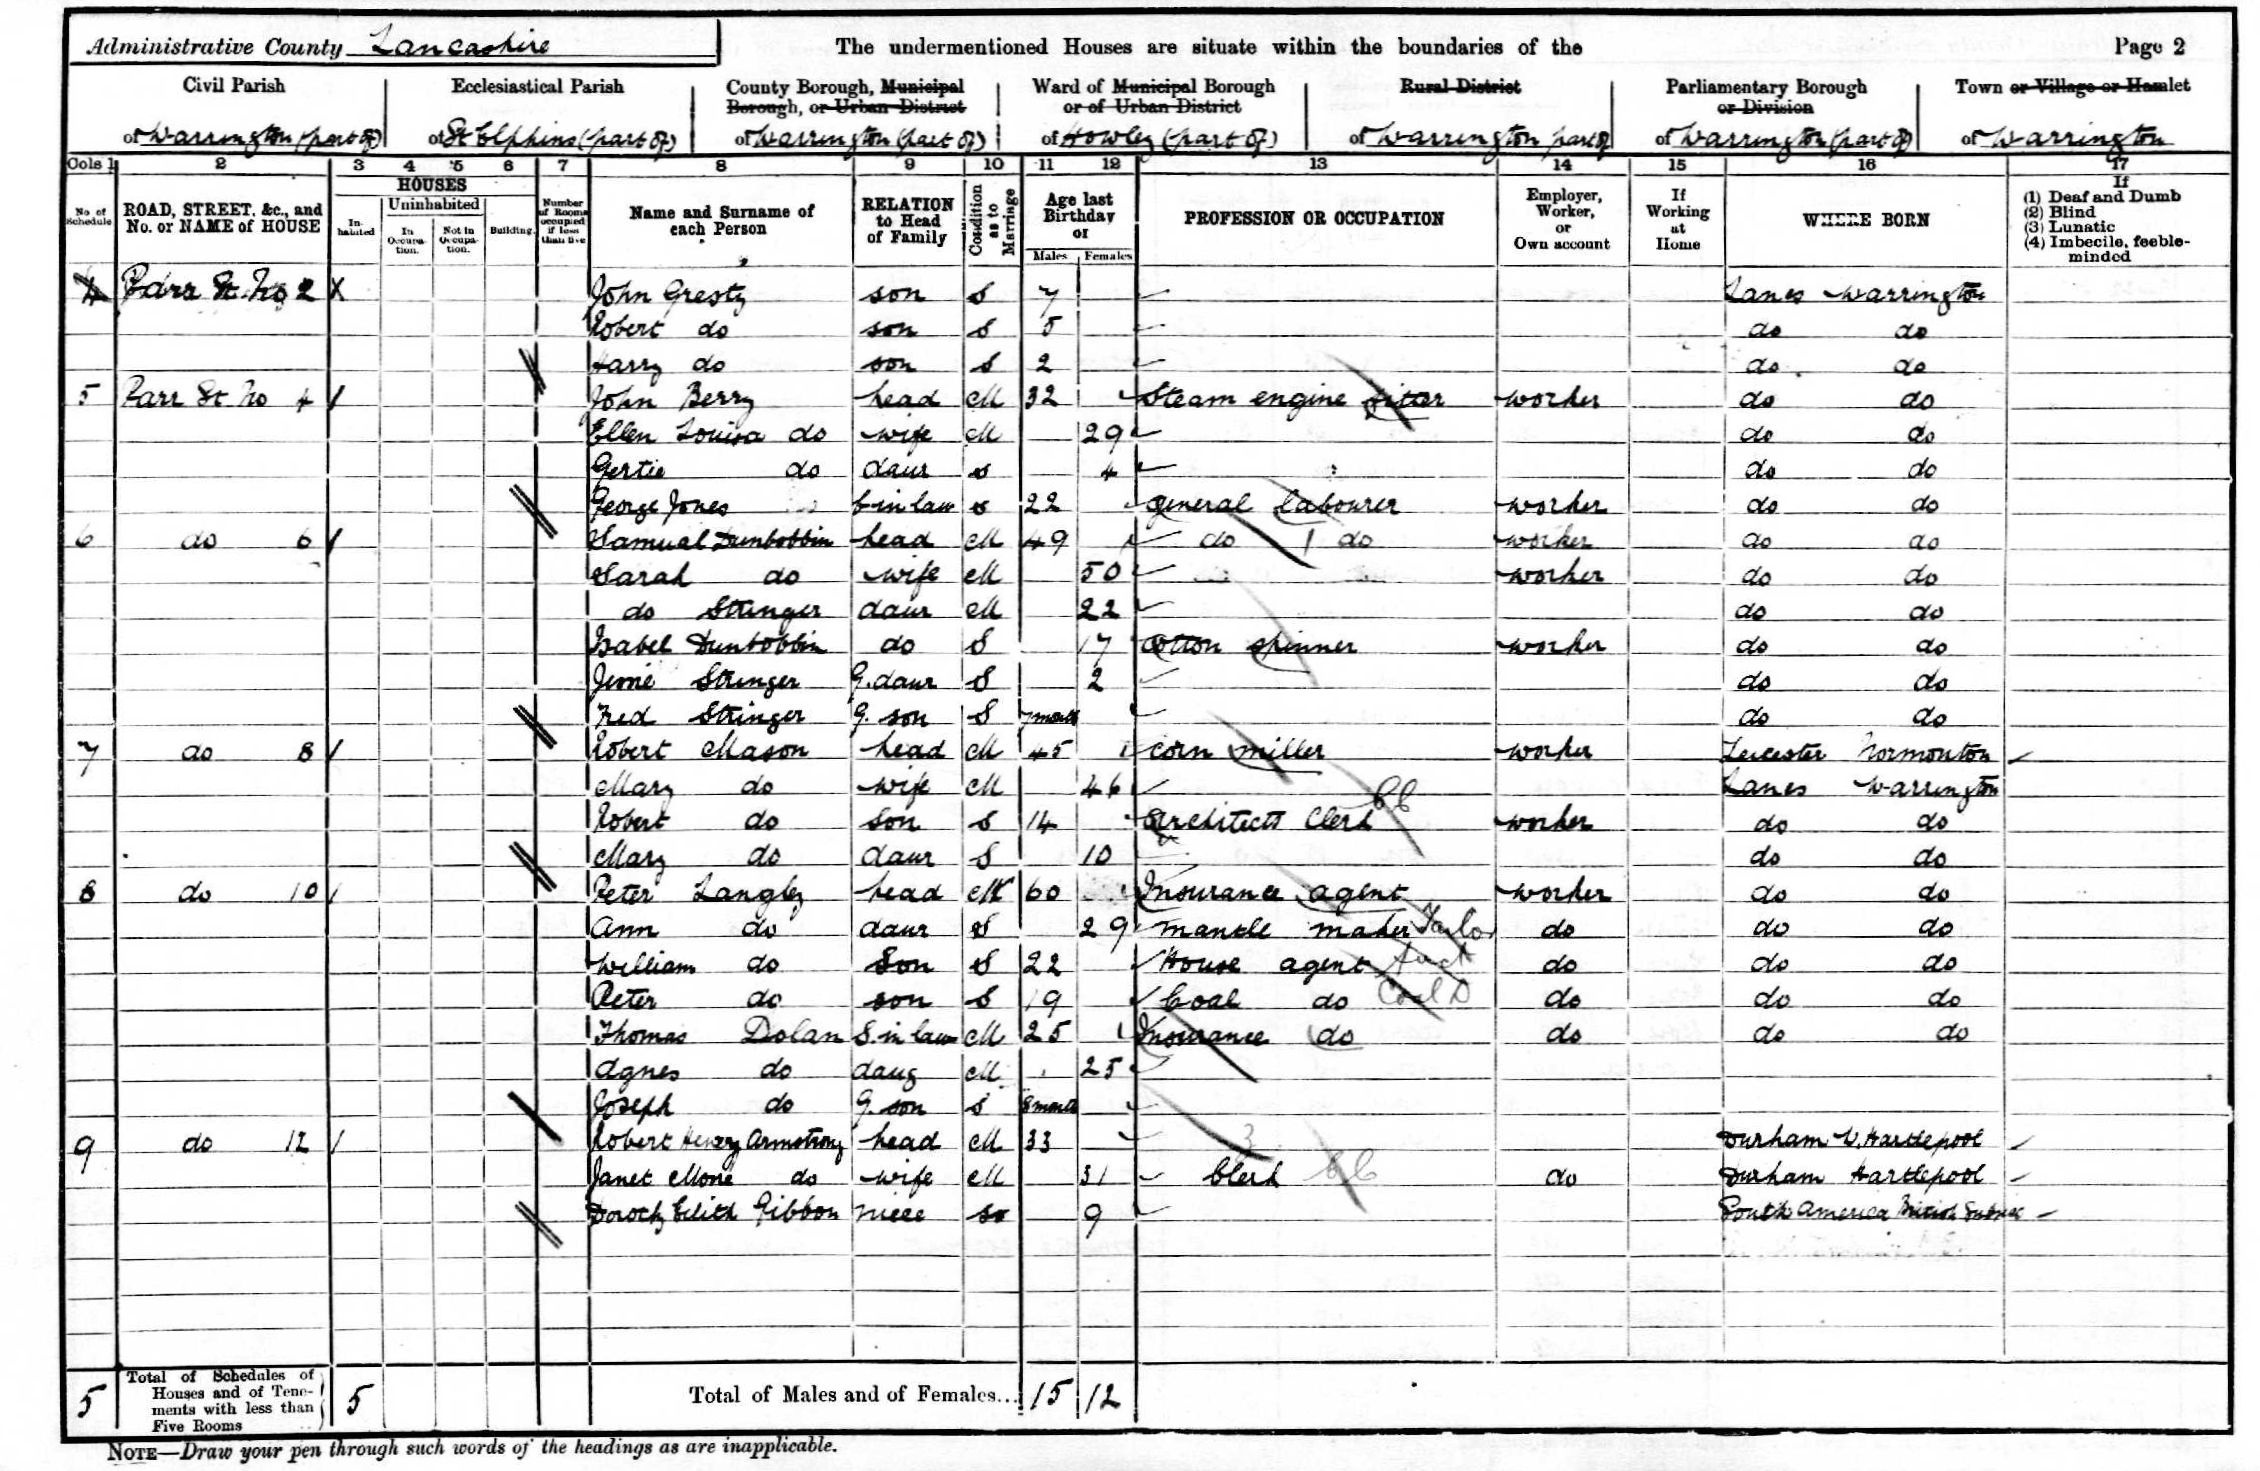 Administrative County Lancashire The undermentioned Houses are situate within the boundaries of the Page 2
Civil Parish Ecclesiastical Parish County Borough, Municipal Borough, or Urban District Ward of Municipal Borough or of Urban District Rural District Parliamentary Borough or Division Town or Village or Hamlet
of Warrington (part of) of St Elphins (part of) of Warrington (part of) of Howley (part of) of Warrington part of of Warrington (part of) of Warrington
Cols 1 2 3 4 5 6 7 8 9 10 11 12 13 14 15 16 17
No of Schedule ROAD, STREET, &c., and No. or NAME of HOUSE HOUSES Inhabited Uninhabited In Occupation. Not in Occupation. Building. Number of Rooms occupied if less than five Name and Surname of each Person RELATION to Head of Family Condition as to Marriage Age last Birthday of Males Females PROFESSION OR OCCUPATION Employer, Worker, or Own account If Working at Home WHERE BORN If (1) Deaf and Dumb (2) Blind (3) Lunatic (4) Imbecile, feeble-minded
4 Parr St No 2 X John Gresty son S 7 Lancs Warrington
Robert do son S 5 do do
Harry do son S 2 do do
5 Parr St No 4 1 John Berry head M 32 Steam engine fitter worker do do
Ellen Louisa do wife M 29 do do
Gertie do daur S 4 do do
George Jones b in law S 22 general labourer worker do do
6 do 6 1 Samual Dunbobbin head M 49 do do worker do do
Sarah do wife M 50 worker do do
do Stringer daur M 22 do do
Isabel Dunbobbin do S 17 Cotton spinner worker do do
Stringer G. daur S 2 do do
Fred Stringer G. son S 7 month do do
7 do 8 1 Robert Mason head M 45 corn miller worker Leicester Normonton
Mary do wife M 46 Lancs Warrington
Robert do son S 14 Architects Clerk worker do do
Mary do daur S 10 do do
8 do 10 1 Peter Langley head M 60 Insurance agent worker do do
Ann do daur S 29 mantle maker Tailor do do do
William do Son S 22 House agent do do do
Peter do son S 19 Coal do Coal D do do do
Thomas Dolan S. in law M 25 Insurance do do do do
Agnes do daug M 25
Joseph do G. son S 8 month
9 do 12 1 Robert Henry Armstrong head M 33 Durham W. Hartlepool
Janet do wife M 31 Clerk do Durham Hartlepool
Dorothy Edith Gibbon niece 9 South America British Subject
5 Total of Schedules of Houses and of Tenements with less than Five Rooms 5 Total of Males and of Females... 15 12
NOTE—Draw your pen through such words of the headings as are inapplicable.